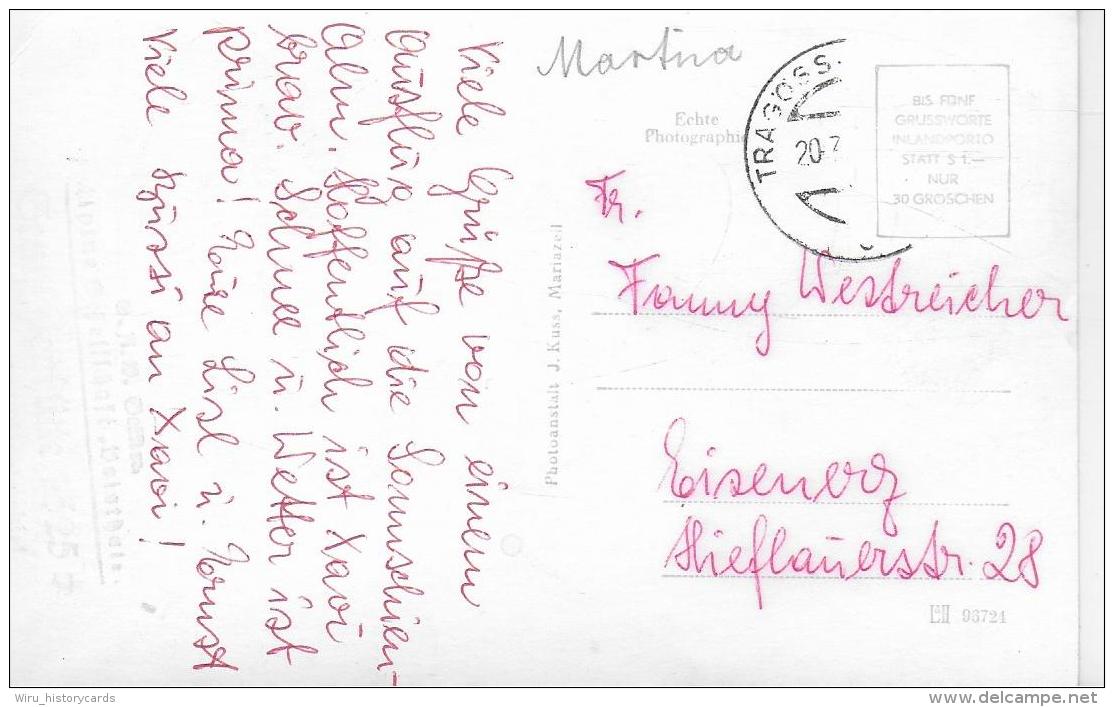 Viele Grüße von einem
Ausflug auf die Sonnschien-
alm. Hoffentlich ist Xavi
brav. Schnee u. Wetter ist
prima! Eure Lisl u. Ernst
Viele Bussi an Xavi!
Martina
Echte
Photographie
TRAGÖSS.
20.7
BIS FÜNF
GRUSSWORTE
INLANDPORTO
STATT S 1.—
NUR
30 GROSCHEN
Fr.
Fanny Westreicher
Eisenerz
Hieflauerstr. 28
Photoanstalt J. Kuss, Mariazell
96724
Wiru_historycards
www.delcampe.net